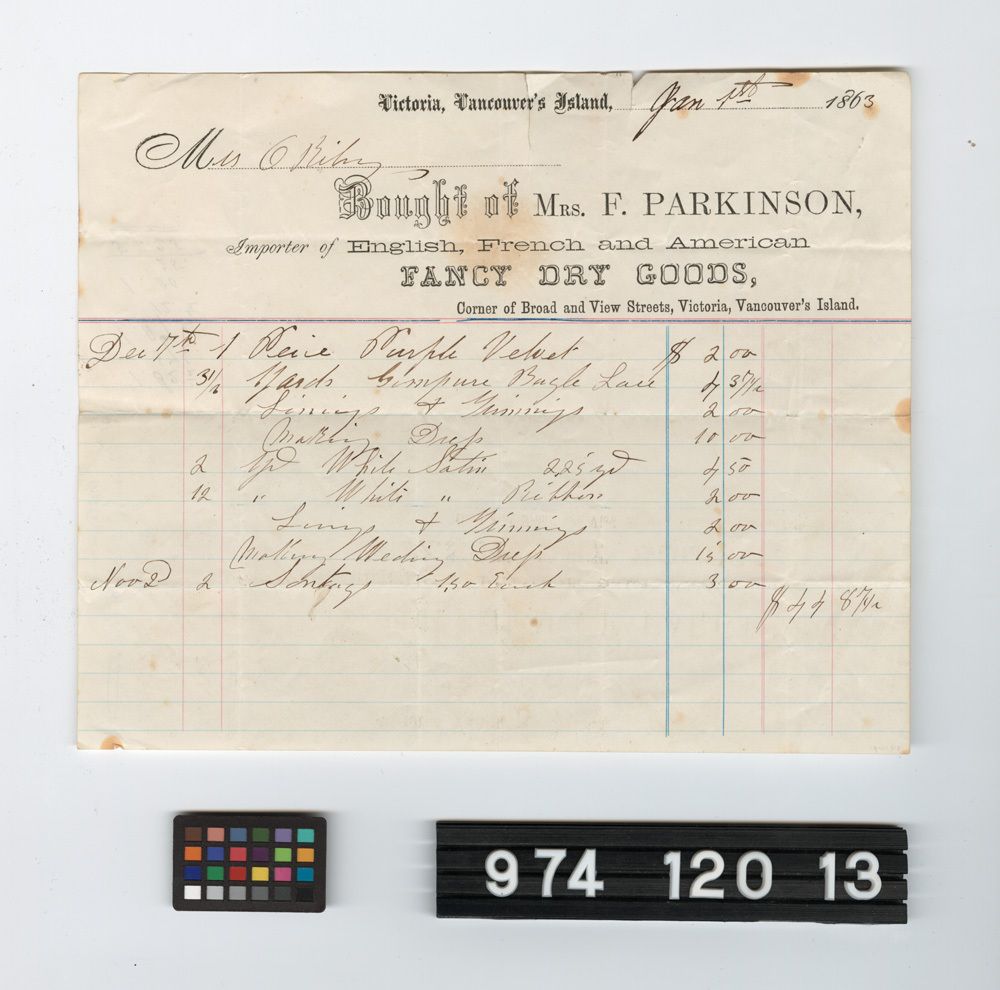 Victoria, Vancouver's Island, Jan 1st 1863
Mrs O Riley
Bought of Mrs. F. PARKINSON,
Importer of English, French and American
FANCY DRY GOODS,
Corner of Broad and View Streets, Victoria, Vancouver's Island.
Dec 7th 1 Peice Purple Velvet $ 2 00
3 1/2 Yards Guipure Bugle Lace 4 37 1/2
Linings & Trimings 2 00
Making Dress 10 00
2 Yd White Satin 2.25 yd 4 50
12 " White " Ribbon 2 00
Linings & Trimings 2 00
Making Weding Dress 15 00
Nov 2d 2 Sontags 1.50 Each 3 00
$ 44 87 1/2
974 120 13